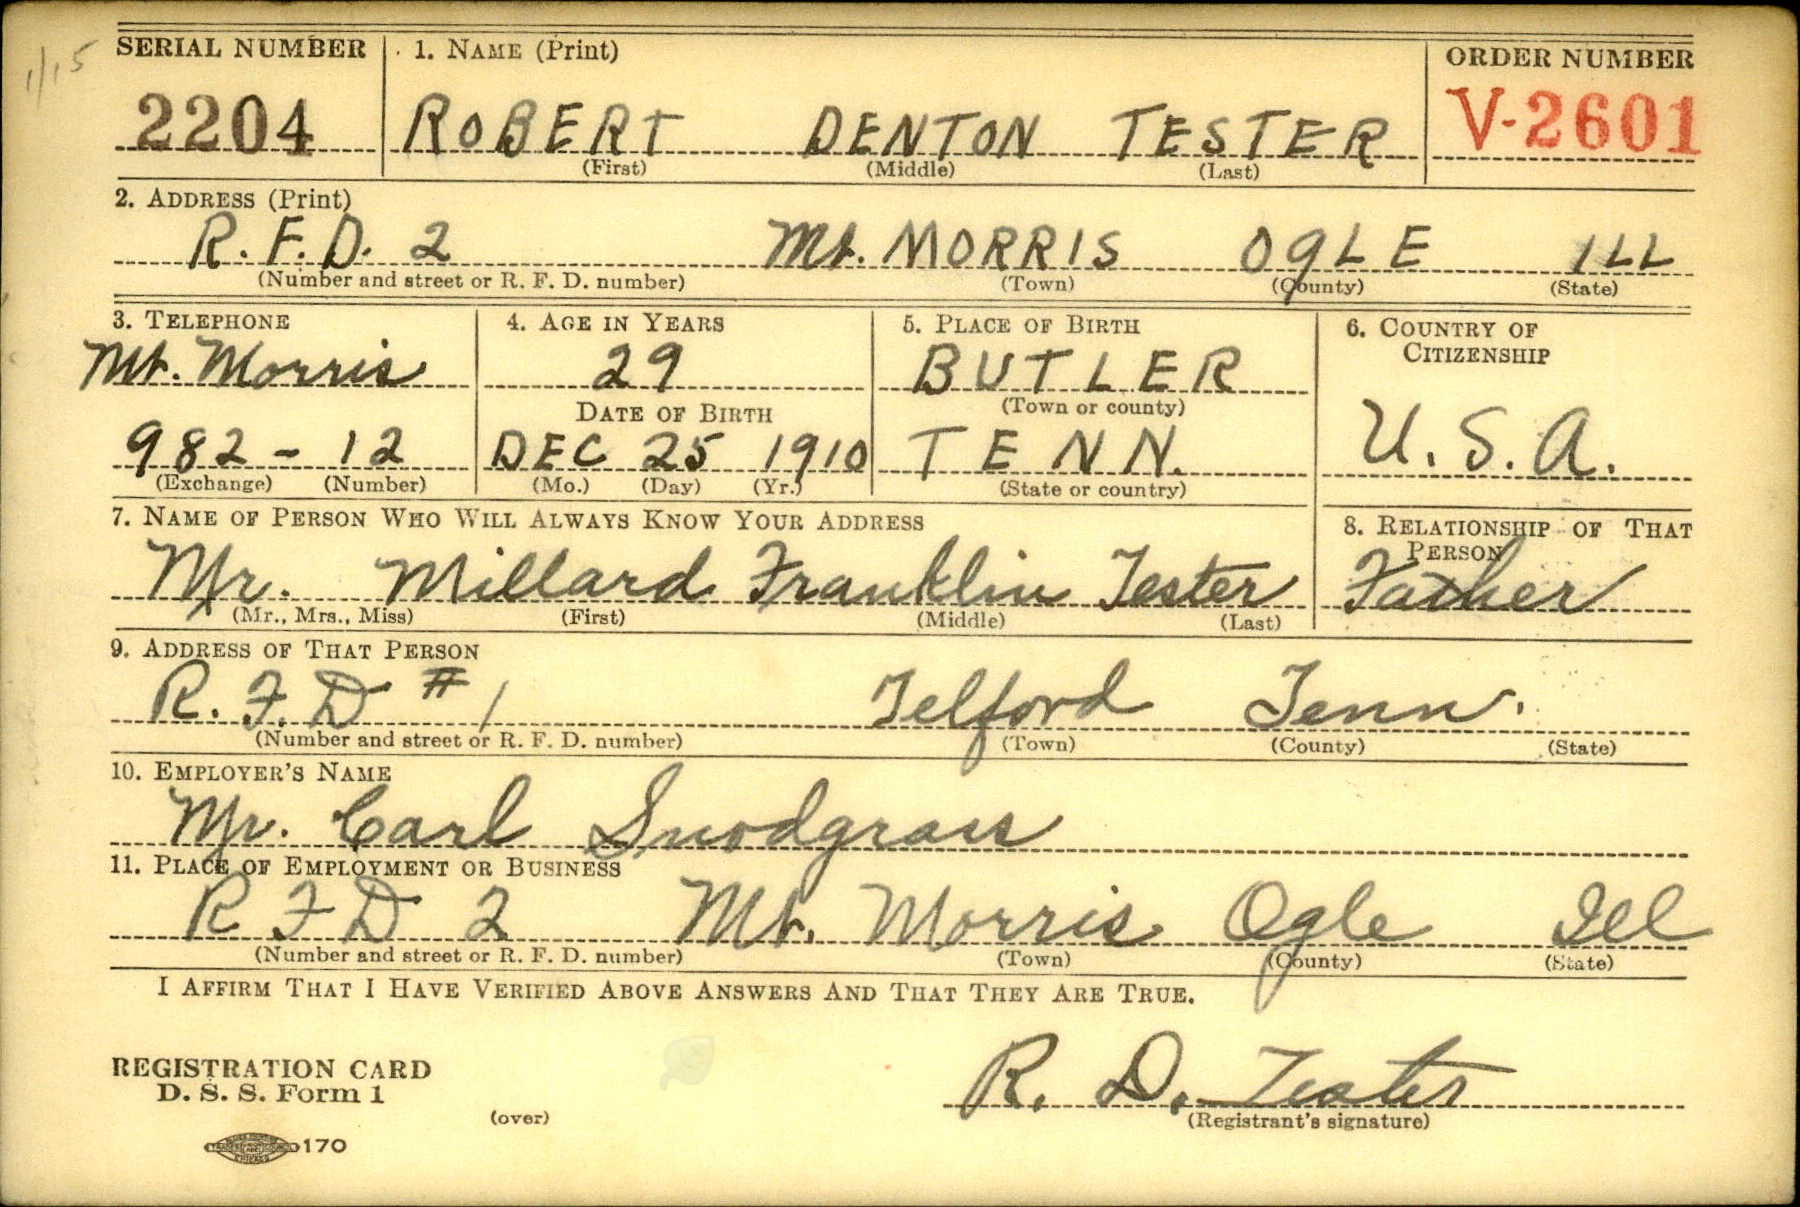 1/15
SERIAL NUMBER 1. NAME (Print) ORDER NUMBER
2204 ROBERT DENTON TESTER V-2601
(First) (Middle) (Last)
2. ADDRESS (Print)
R.F.D. 2 Mt. MORRIS OGLE ILL
(Number and street or R. F. D. number) (Town) (County) (State)
3. TELEPHONE 4. AGE IN YEARS 5. PLACE OF BIRTH 6. COUNTRY OF CITIZENSHIP
Mt. Morris 29 BUTLER
DATE OF BIRTH (Town or county)
982 - 12 DEC 25 1910 TENN. U.S.A.
(Exchange) (Number) (Mo.) (Day) (Yr.) (State or country)
7. NAME OF PERSON WHO WILL ALWAYS KNOW YOUR ADDRESS 8. RELATIONSHIP OF THAT PERSON
Mr. Millard Franklin Tester Father
(Mr., Mrs., Miss) (First) (Middle) (Last)
9. ADDRESS OF THAT PERSON
R.F.D # 1 Telford Tenn.
(Number and street or R. F. D. number) (Town) (County) (State)
10. EMPLOYER'S NAME
Mr. Carl Snodgrass
11. PLACE OF EMPLOYMENT OR BUSINESS
R F D 2 Mt. Morris Ogle Ill
(Number and street or R. F. D. number) (Town) (County) (State)
I AFFIRM THAT I HAVE VERIFIED ABOVE ANSWERS AND THAT THEY ARE TRUE.
REGISTRATION CARD
D. S. S. Form 1 R. D. Tester
(over) (Registrant's signature)
170